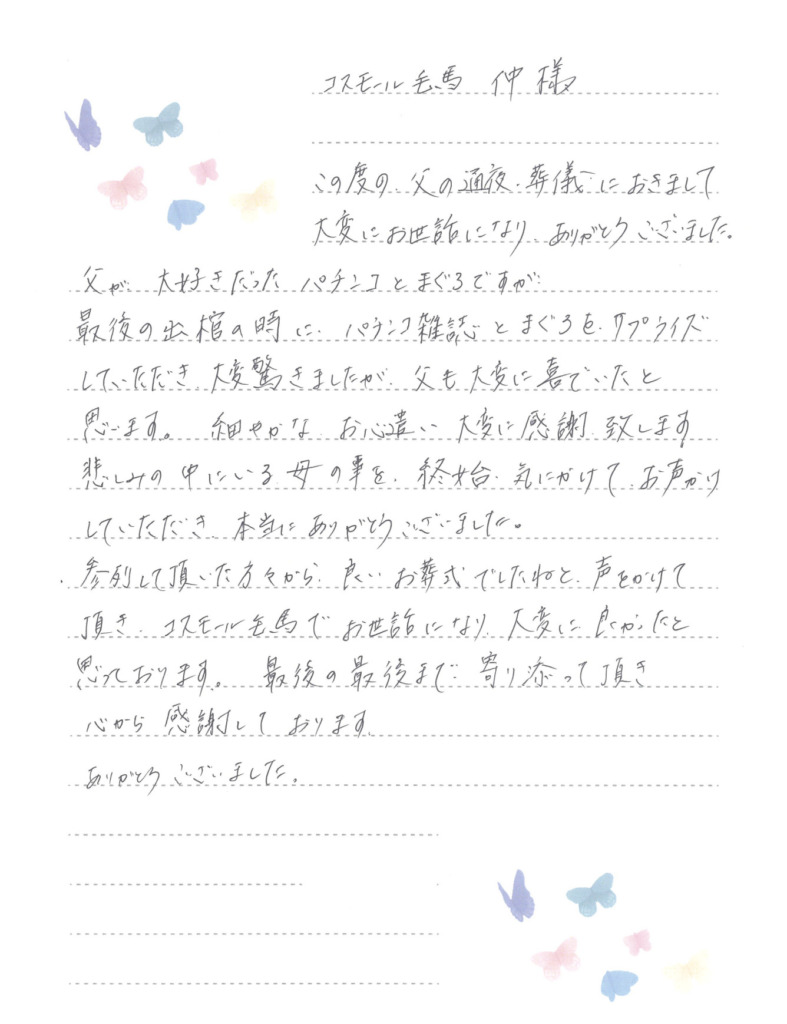 コスモール毛馬 仲様
この度の 父の通夜、葬儀におきまして
大変にお世話になり、ありがとうございました。
父が、大好きだった パチンコと まぐろですが、
最後の出棺の時に、パチンコ雑誌と まぐろを、サプライズ
していただき、大変驚きましたが、父も大変に喜でいたと
思います。 細やかな お心遣い 大変に感謝 致します
悲しみの中にいる母の事を、終始、気にかけて、お声かけ
していただき、本当に ありがとうございました。
参列して頂いた方々から、良いお葬式でしたねと、声をかけて
頂き、コスモール毛馬で お世話になり、大変に良かったと
思っております。 最後の最後まで、寄り添って頂き
心から感謝して おります、
ありがとうございました。